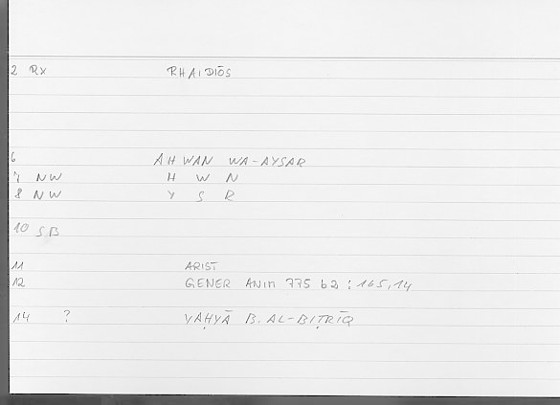 2 RX RHAIDIŌS
6 AHWAN WA-AYSAR
7 NW H W N
8 NW Y S R
10 SB
11 ARIST
12 GENER ANIM 775 b2 : 165,14
14 ? YAḤYĀ B. AL-BIṬRĪQ